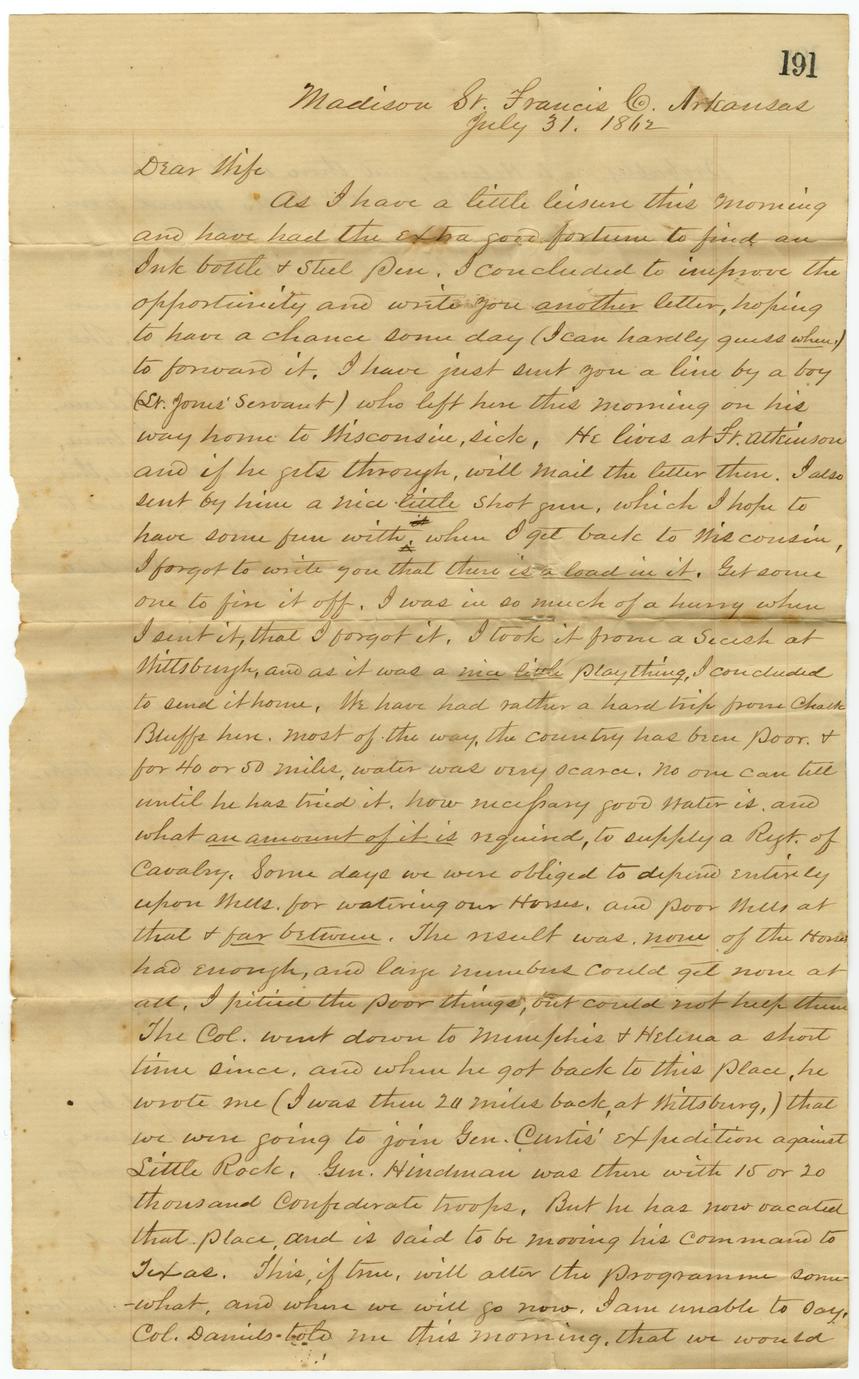 191
Madison St. Francis Co. Arkansas
July 31. 1862
Dear Wife
As I have a little leisure this morning
and have had the extra good fortune to find an
Ink bottle & Steel Pen. I concluded to improve the
opportunity and write you another letter, hoping
to have a chance some day (I can hardly guess when,)
to forward it. I have just sent you a line by a boy
(Lt. Jones' Servant) who left here this morning on his
way home to Wisconsin, sick, He lives at Ft. Atkinson
and if he gets through, will mail the letter there. I also
sent by him a nice little Shot gun, which I hope to
have some fun with it, when I get back to Wisconsin,
I forgot to write you that there is a load in it. Get some
one to fire it off. I was in so much of a hurry when
I sent it, that I forgot it. I took it from a Secesh at
Wittsburgh, and as it was a nice little plaything, I concluded
to send it home. We have had rather a hard trip from Chalk
Bluffs here. Most of the way, the country has been poor. &
for 40 or 50 miles, water was very scarce. No one can tell
until he has tried it. how necessary good Water is. and
what an amount of it is required, to supply a Regt. of
Cavalry. Some days we were obliged to depend entirely
upon Wells. for watering our Horses. and poor Wells at
that & far between. The result was. none of the Horses
had enough, and large numbers could get none at
all. I pitied the poor things, but could not help them
The Col. went down to Memphis & Helena a short
time since. and when he got back to this Place, he
wrote me (I was then 20 miles back, at Wittsburg,) that
we were going to join Gen. Curtis' expedition against
Little Rock. Gen. Hindman was there with 15 or 20
thousand Confederate troops. But he has now vacated
that place, and is said to be moving his command to
Texas. This, if true, will alter the programme some-
-what, and where we will go now. I am unable to say.
Col. Daniels told me this morning, that we would